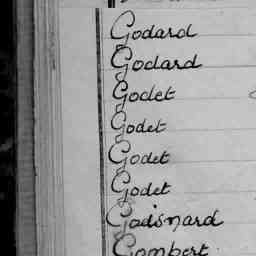 Godard
Godard
Godet
Godet
Godet
Godet
Goismard
Gombert